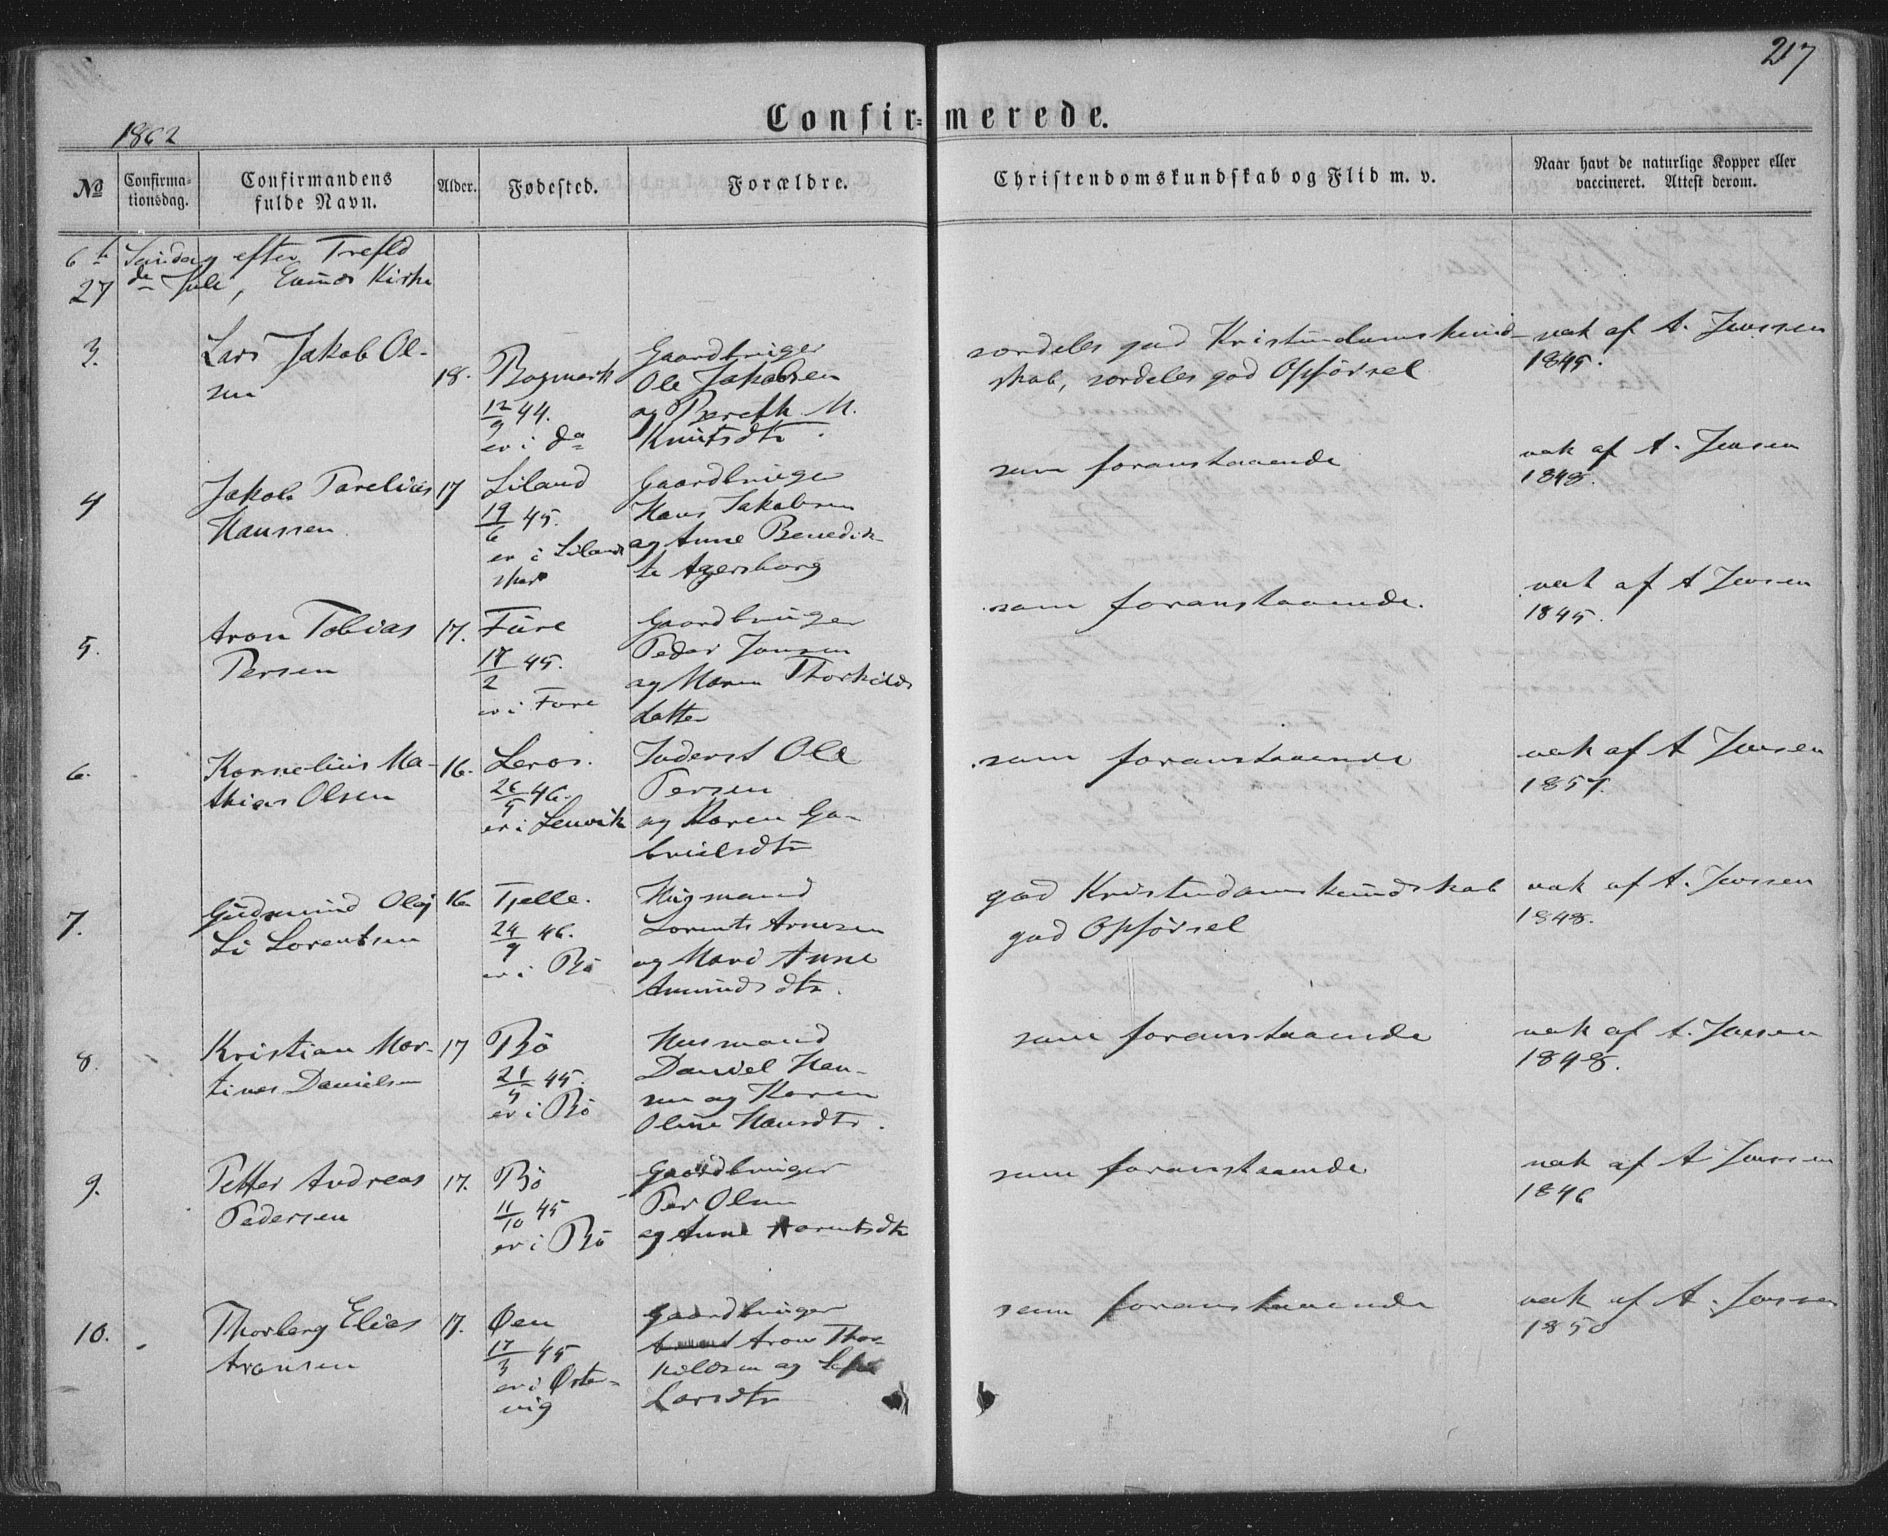 217
Confirmerede.
1862
No
Confirma-
tionsdag.
Confirmandens
fulde Navn.
Alder.
Fødested.
Forældre.
Christendomskundskab og Flid m. v.
Naar havt de naturlige Kopper eller
vaccineret. Attest derom.
6te Søndag efter Trefld
27de Juli, Kirke
3.
Lars Jakob Ol-
sen
18.
Bogmark
12/9 44.
er i do
Gaardbruger
Ole Jakobsen
og Bereth M.
Knutsdtr.
særdeles god Kristendomskund-
skab, særdeles god Opførsel
vak af A. Jenssen
1845.
4
Jakob Parelius
Hanssen
17
Liland
19/6 45.
er i Liland
Gaardbruger
Hans Jakobsen
og Anne Benedik-
te Agersborg
som foranstaaende
vak af A. Jensen
1848.
5.
Aron Tobias
Persen
17.
Fure
17/2 45.
er i Fure
Gaardbruger
Peder Jonsen
og Maren Thorkilds
datter
som foranstaaende.
vak af A Jensen
1845.
6.
Kornelius Ma-
thias Olsen
16.
Leros.
26/5 46.
er i Lenvik
Inderst Ole
Persen
og Karen Ga-
brielsdtr
som foranstaaende
vak af A Jensen
1857.
7.
Gudmund Olaj
Li Lorentsen
16.
Tjelle.
24/9 46.
er i Bö
Husmand
Lorents Arnesen
og Mari Anne
Amundsdtr.
god Kristendomskundskab
god Opførsel
vak af A. Jenssen
1848.
8.
Kristian Mar-
tines Danielsen
17
Bö
21/5 45.
er i Bö
Husmand
Daniel Han-
sen og Karen
Oline Hansdtr.
som foranstaaende
vak af A. Jensen
1848.
9.
Petter Andreas
Pedersen
17.
Bö
11/10 45
er i Bö
Gaardbruger
Per Olsen
og Anne Arentsdtr
som foranstaaende
vak af A Jenssen
1846
10.
Thorberg Elias
Aronsen
17.
Øen
17/3 45
er i Øster-
vig
Gaardbruger
Aron Thor-
kildsen og
Larsdtr
som foranstaaende
vak af A. Jensen
1850